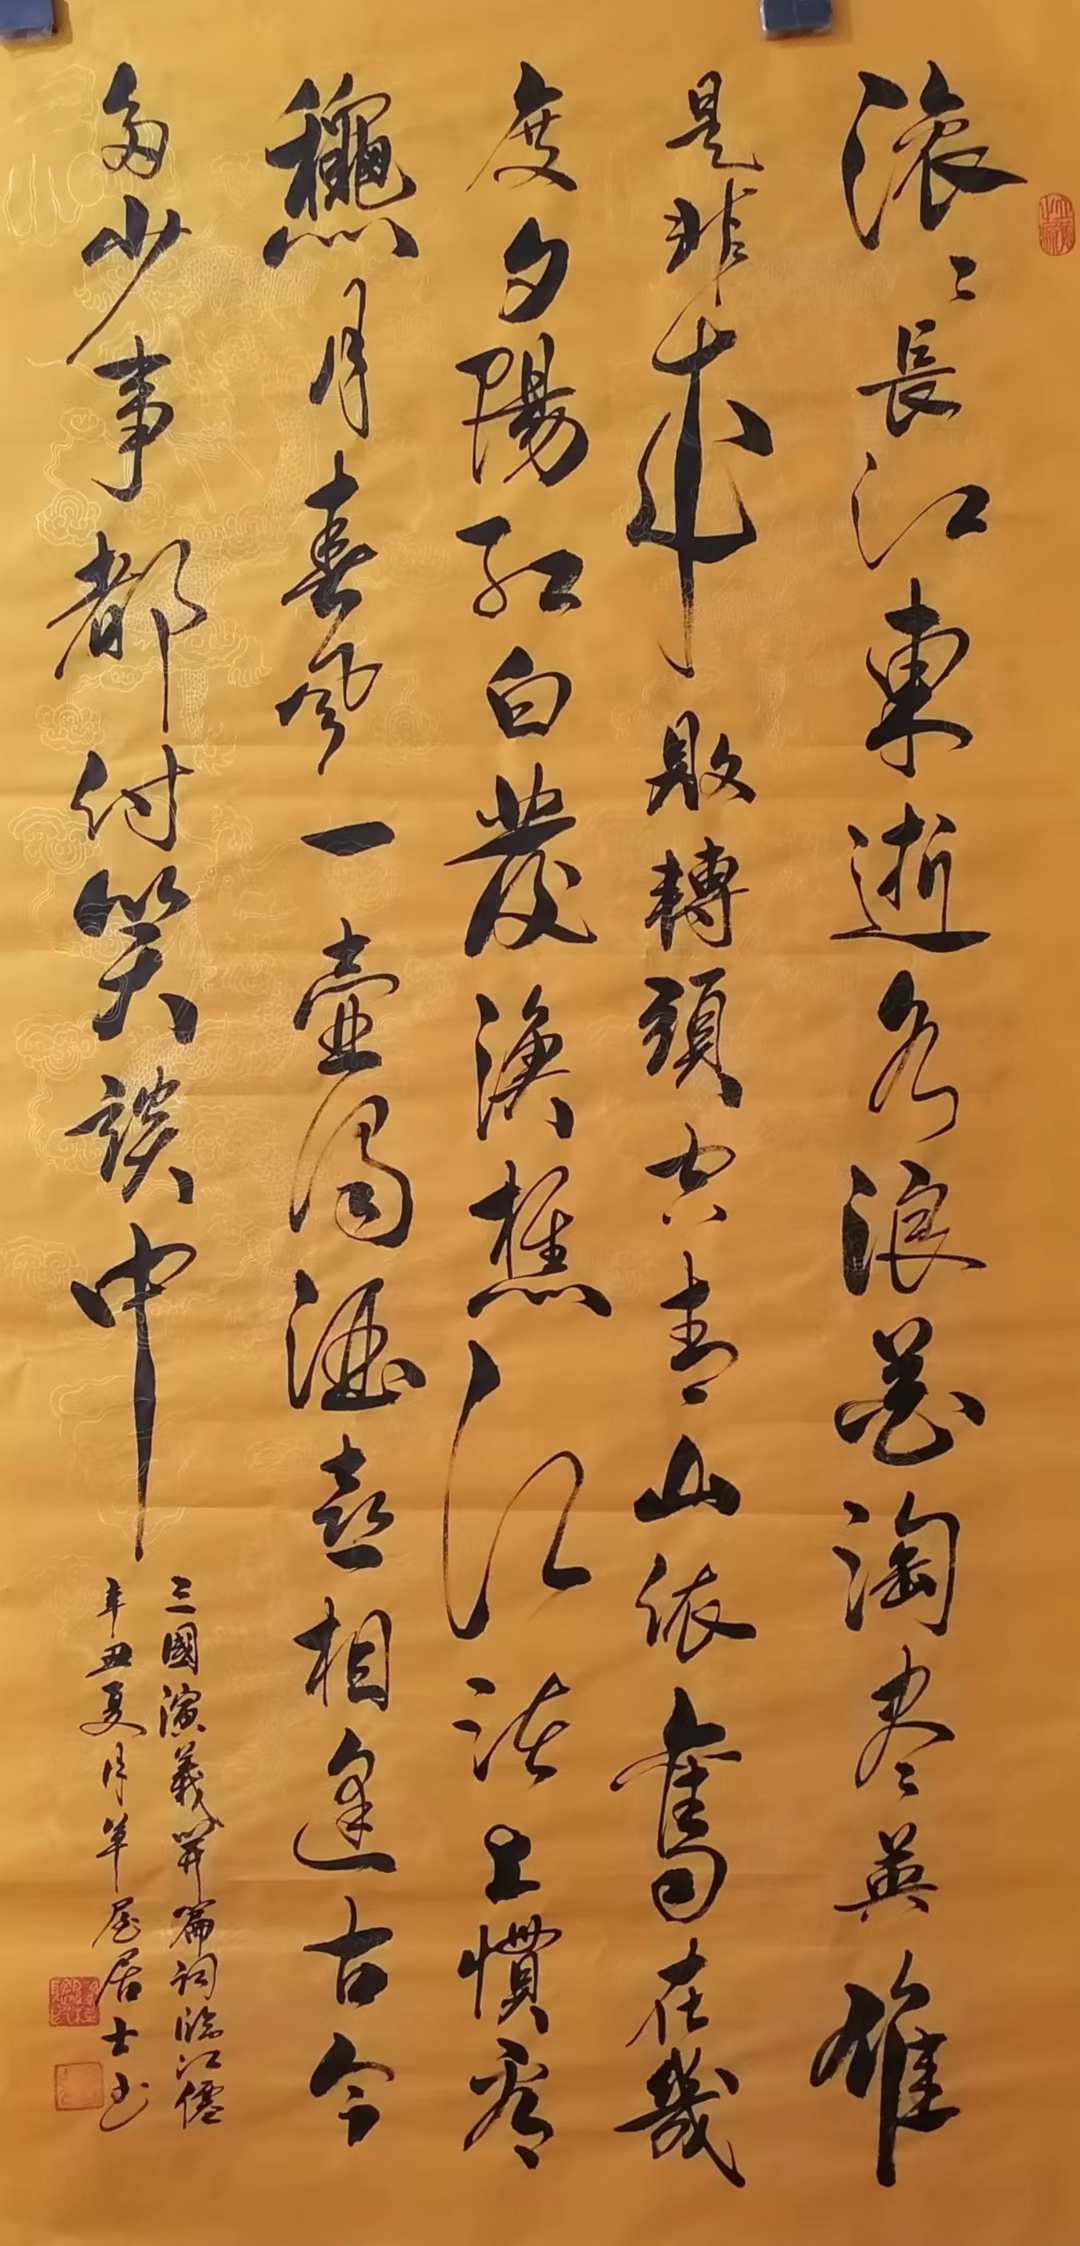 滚〻長江東逝水浪花淘尽英雄
是非成敗轉頭空青山依舊在幾
度夕陽紅白發漁樵江渚上慣看
龝月春風一壺濁酒喜相逢古今
多少事都付笑談中
三國演義開篇詞臨江僊
辛丑夏月草屋居士书